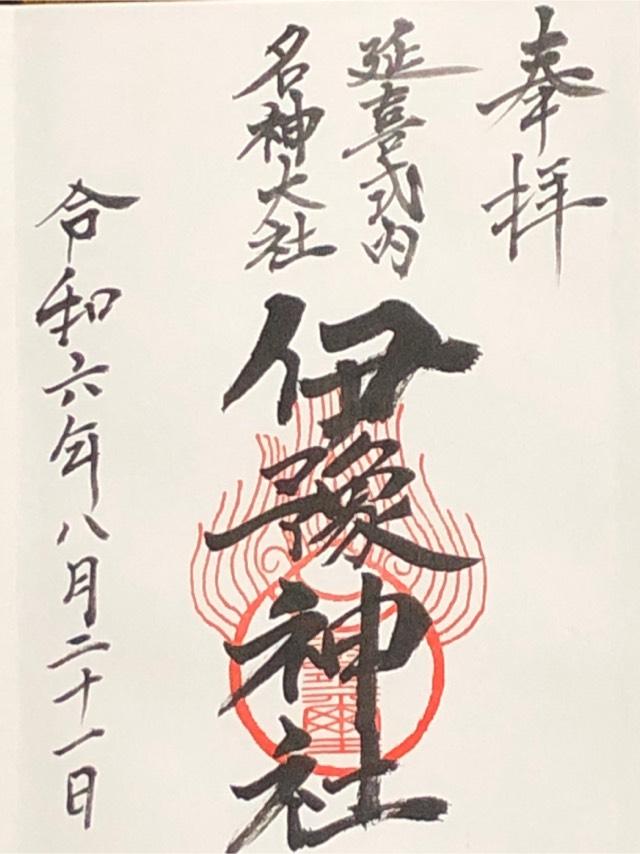 奉拝
延喜式内
名神大社
伊豫神社
令和六年八月二十一日